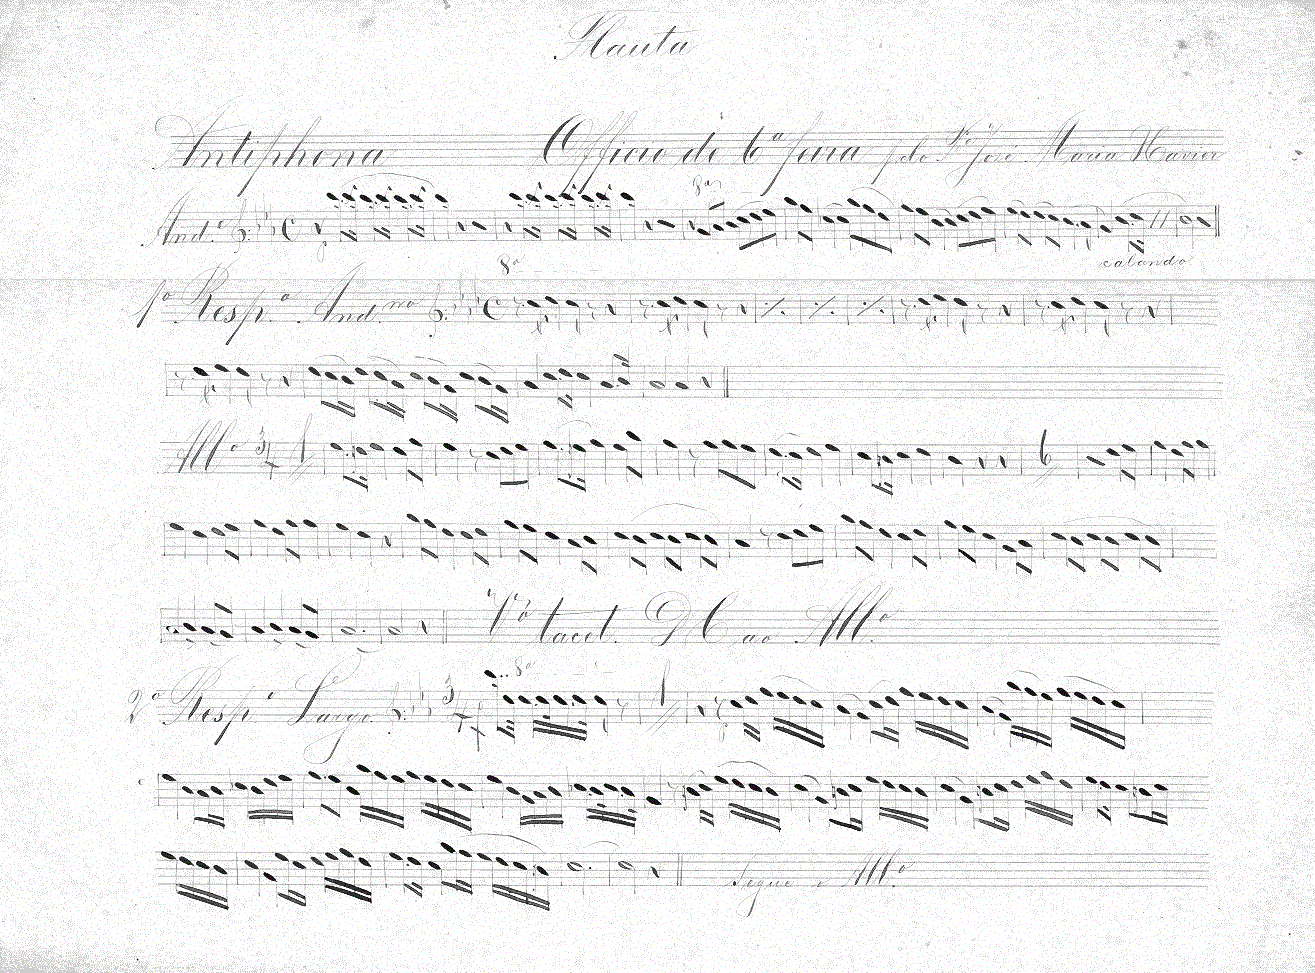 Flauta
Antiphona Officio de 6ª feira pelo Pe José Maria Xavier
And.e C
8ª
calando
8ª
1º Resp.º And.no C
All.º 3/4 1
6
Vº tacet. D.C. ao All.º
8ª
2º Resp.º Largo 3/4 1
Segue o All.º